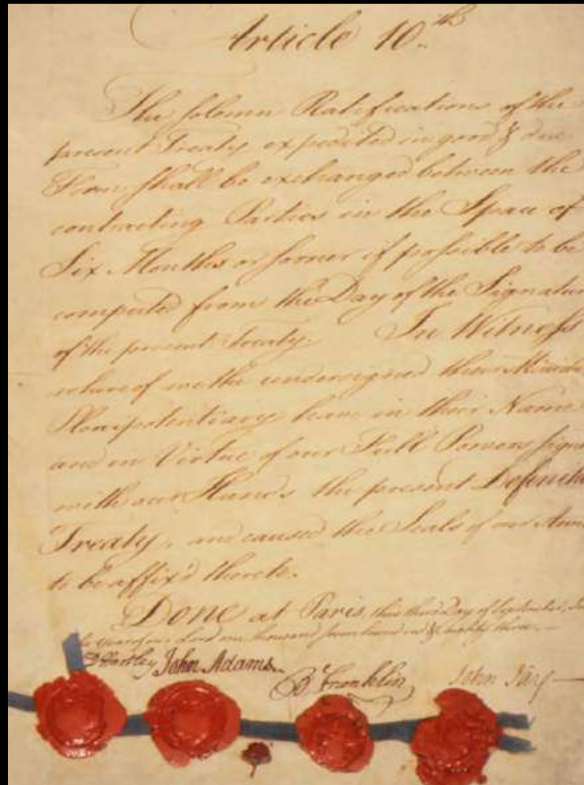 Article 10.th
The solemn Ratifications of the
present Treaty expedited in good & due
Form shall be exchanged between the
contracting Parties in the Space of
Six Months or sooner if possible to be
computed from the Day of the Signature
of the present Treaty. In Witness
whereof we the undersigned their Minis
Plenipotentiary have in their Name
and in Virtue of our Full Powers signe
with our Hands the present Definitive
Treaty, and caused the Seals of our Arms
to be affix'd thereto.
DONE at Paris, this third Day of September, In
the year of our Lord one thousand seven hundred & eighty three.—
D Hartley John Adams. B Franklin John Jay—